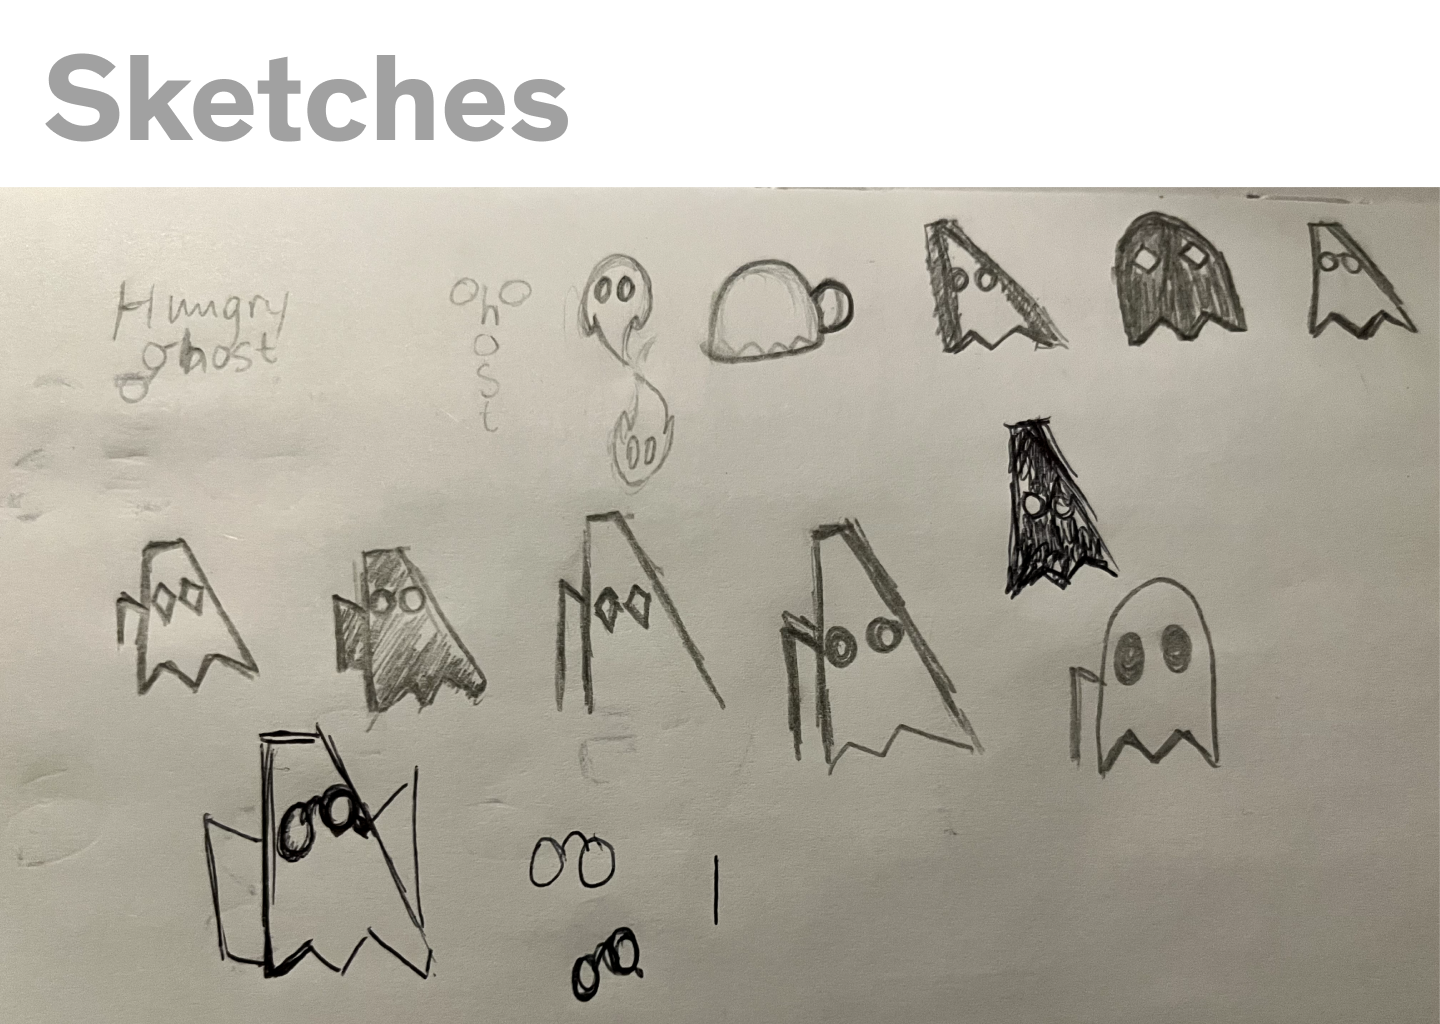 Sketches
Hungry
ghost
oho
o
s
t